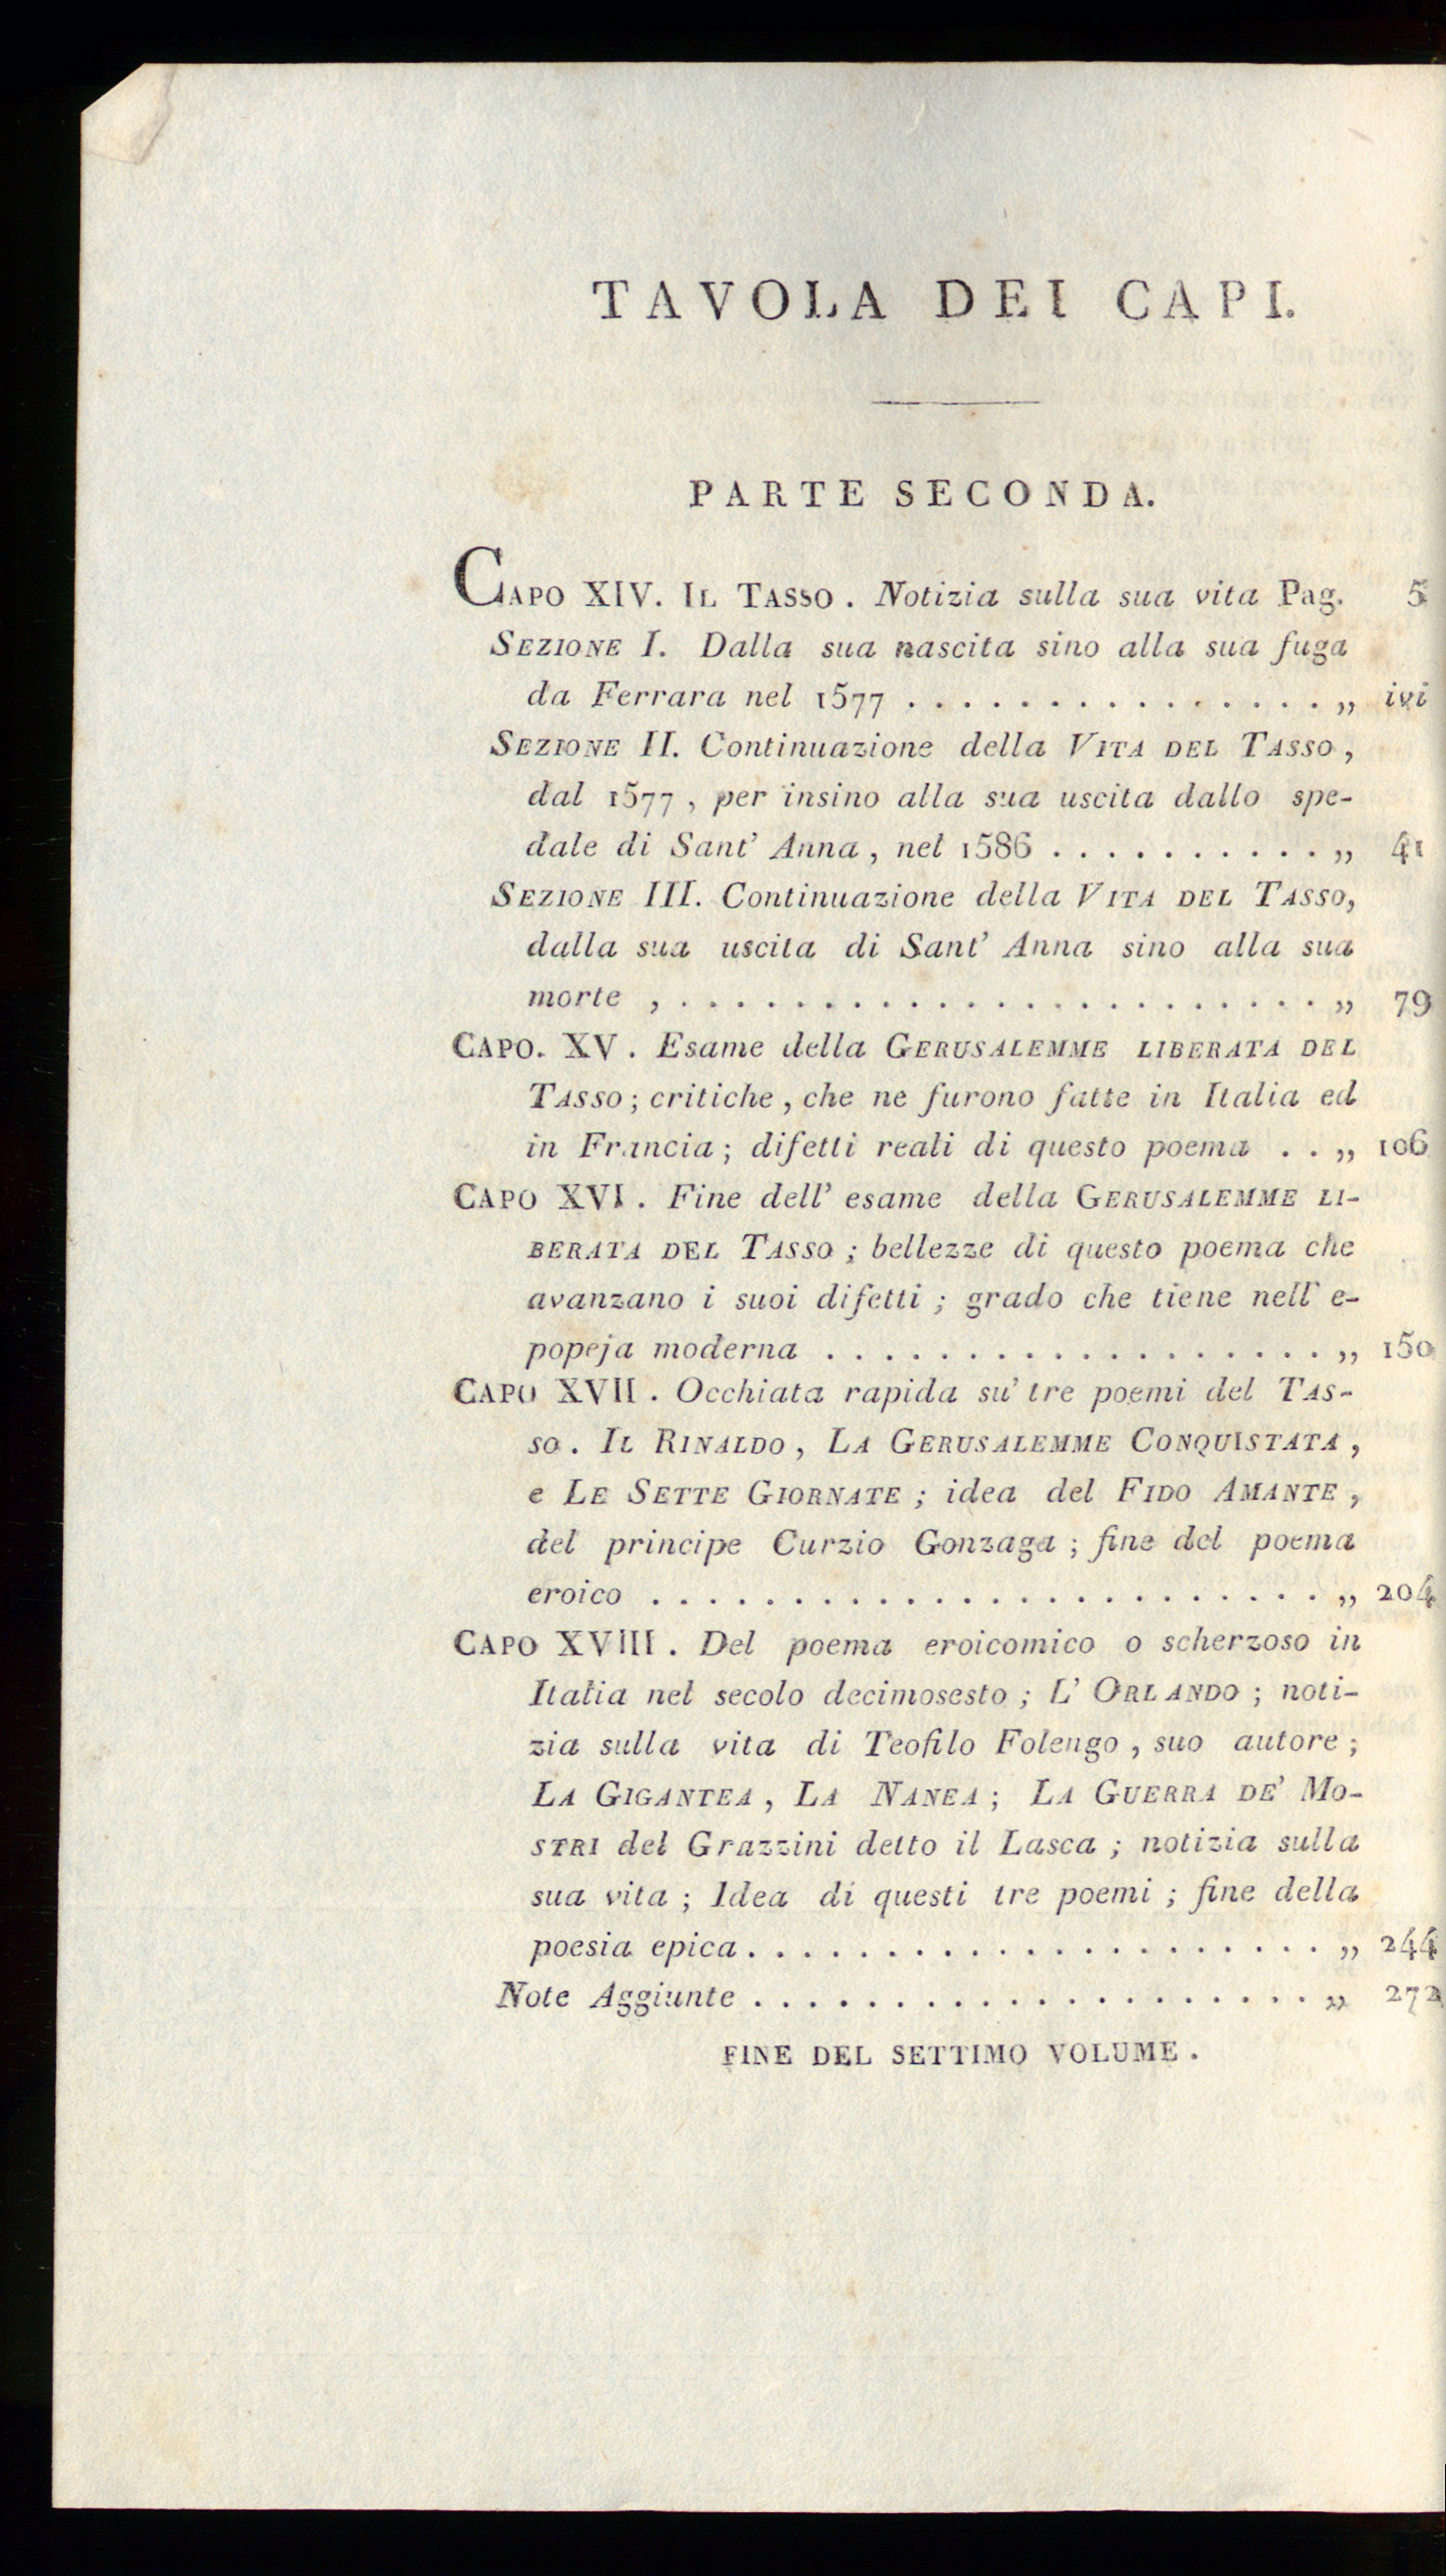 TAVOLA DEI CAPI.
PARTE SECONDA.
CAPO XIV. IL TASSO. Notizia sulla sua vita Pag. 5
SEZIONE I. Dalla sua nascita sino alla sua fuga
da Ferrara nel 1577 . . . . . . . . . . . . . . . „ ivi
SEZIONE II. Continuazione della VITA DEL TASSO,
dal 1577, per insino alla sua uscita dallo spe-
dale di Sant' Anna, nel 1586 . . . . . . . . . . „ 41
SEZIONE III. Continuazione della VITA DEL TASSO,
dalla sua uscita di Sant' Anna sino alla sua
morte , . . . . . . . . . . . . . . . . . . . . . . . „ 79
CAPO. XV. Esame della GERUSALEMME LIBERATA DEL
TASSO; critiche, che ne furono fatte in Italia ed
in Francia; difetti reali di questo poema . . „ 106
CAPO XVI. Fine dell' esame della GERUSALEMME LI-
BERATA DEL TASSO; bellezze di questo poema che
avanzano i suoi difetti; grado che tiene nell' e-
popeja moderna . . . . . . . . . . . . . . . . . . „ 150
CAPO XVII. Occhiata rapida su' tre poemi del TAS-
SO. IL RINALDO, LA GERUSALEMME CONQUISTATA,
e LE SETTE GIORNATE; idea del FIDO AMANTE,
del principe Curzio Gonzaga; fine del poema
eroico . . . . . . . . . . . . . . . . . . . . . . . . „ 204
CAPO XVIII. Del poema eroicomico o scherzoso in
Italia nel secolo decimosesto; L' ORLANDO; noti-
zia sulla vita di Teofilo Folengo, suo autore;
LA GIGANTEA, LA NANEA; LA GUERRA DE' MO-
STRI del Grazzini detto il Lasca; notizia sulla
sua vita; Idea di questi tre poemi; fine della
poesia epica . . . . . . . . . . . . . . . . . . . . . „ 244
Note Aggiunte . . . . . . . . . . . . . . . . . . . . „ 272
FINE DEL SETTIMO VOLUME.